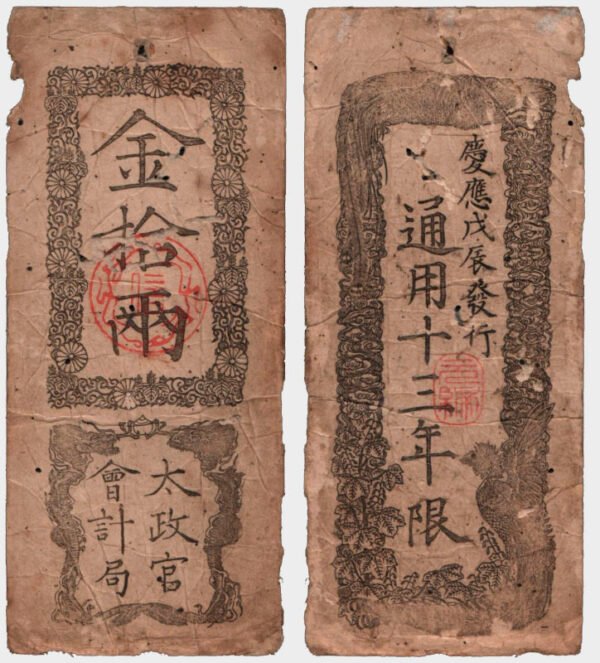 金拾兩
太政官
會計局
慶應戊辰發行
通用十三年限